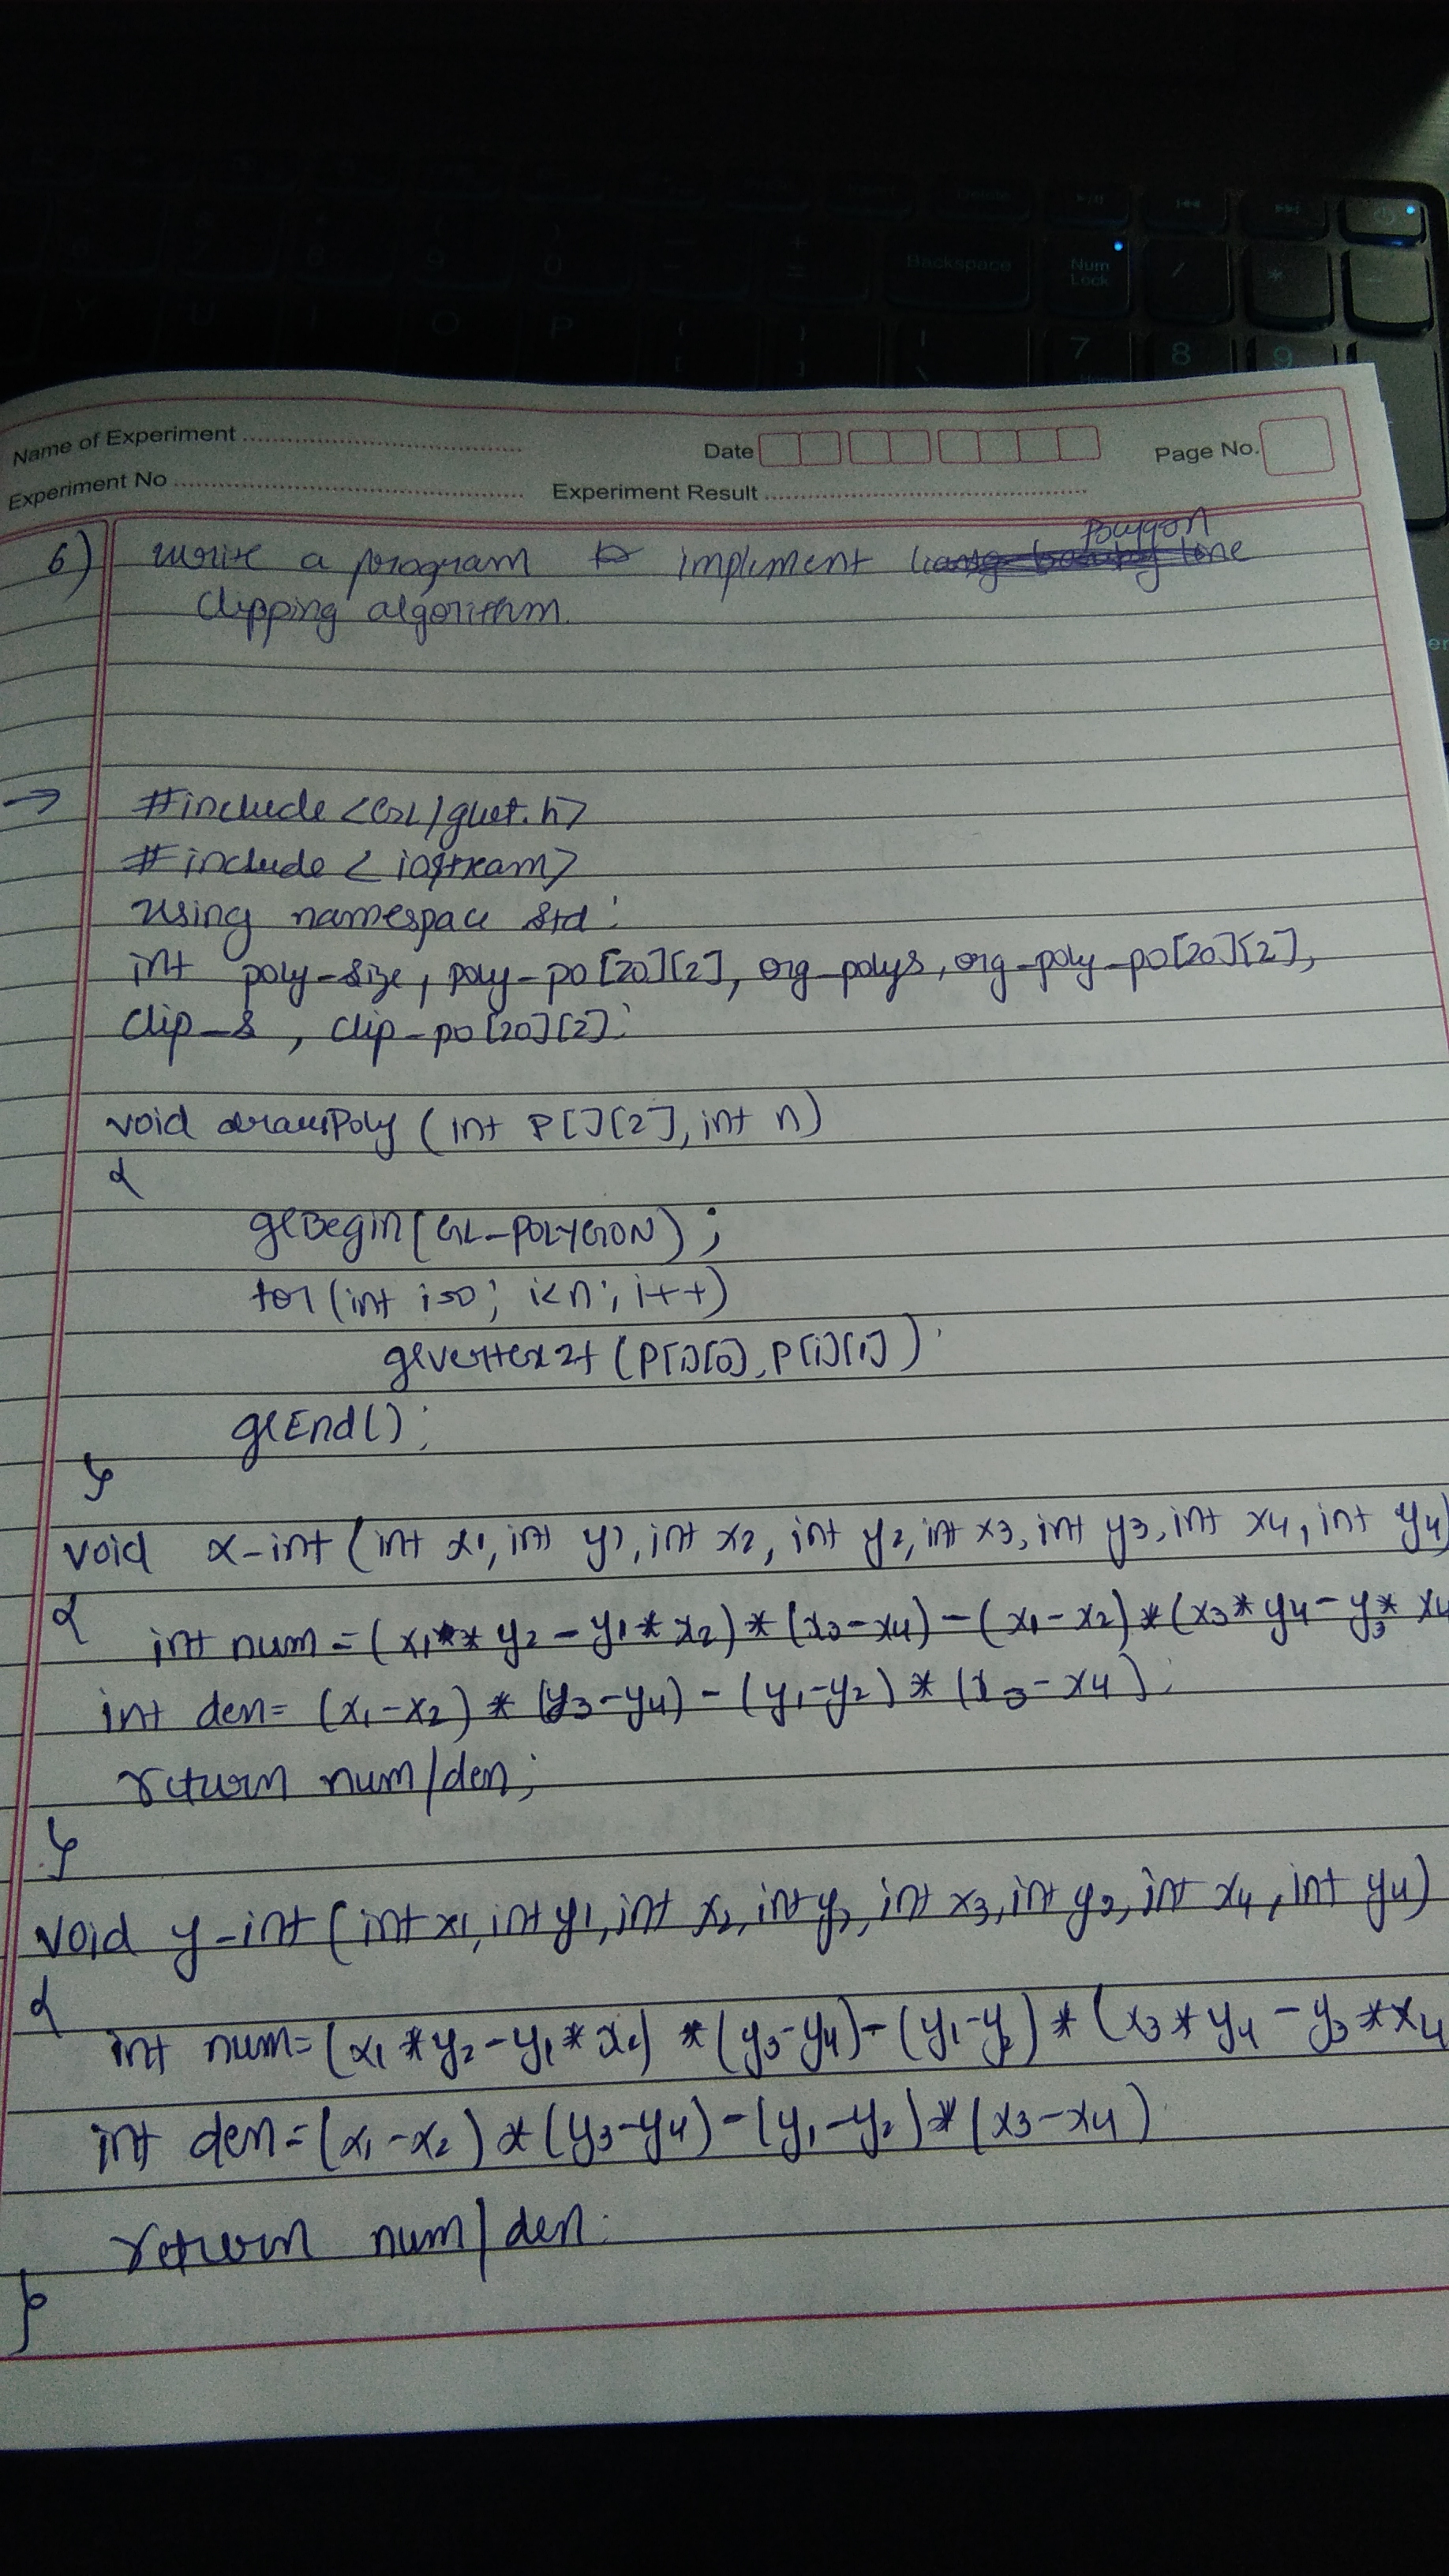 Backspace
Num
Lock
/
*
7
8
9
Name of Experiment
Date
Page No.
Experiment No
Experiment Result
6) Write a program to implement Polygon line
Clipping algorithm.
→ #include <GL/glut.h>
#include < iostream>
Using namespace std;
int poly-size, poly-po[20][2], org-polys, org-poly-po[20][2],
clip-s, clip-po[20][2];
void drawPoly (int P[][2], int n)
{
glBegin(GL-POLYGON);
for (int i=0; i<n; i++)
glvertex2f (P[i][0], P[i][1]);
glEnd();
}
void x-int (int x1, int y1, int x2, int y2, int x3, int y3, int x4, int y4)
{
int num = (x1** y2 - y1 * x2) * (x3 - x4) - (x1 - x2) * (x3 * y4 - y3 * x4
int den = (x1 - x2) * (y3 - y4) - (y1 - y2) * (x3 - x4);
return num/den;
}
void y-int (int x1, int y1, int x2, int y2, int x3, int y3, int x4, int y4)
{
int num = (x1 * y2 - y1 * x2) * (y3 - y4) - (y1 - y2) * (x3 * y4 - y3 ** x4
int den = (x1 - x2) * (y3 - y4) - (y1 - y2) * (x3 - x4);
return num/den;
}